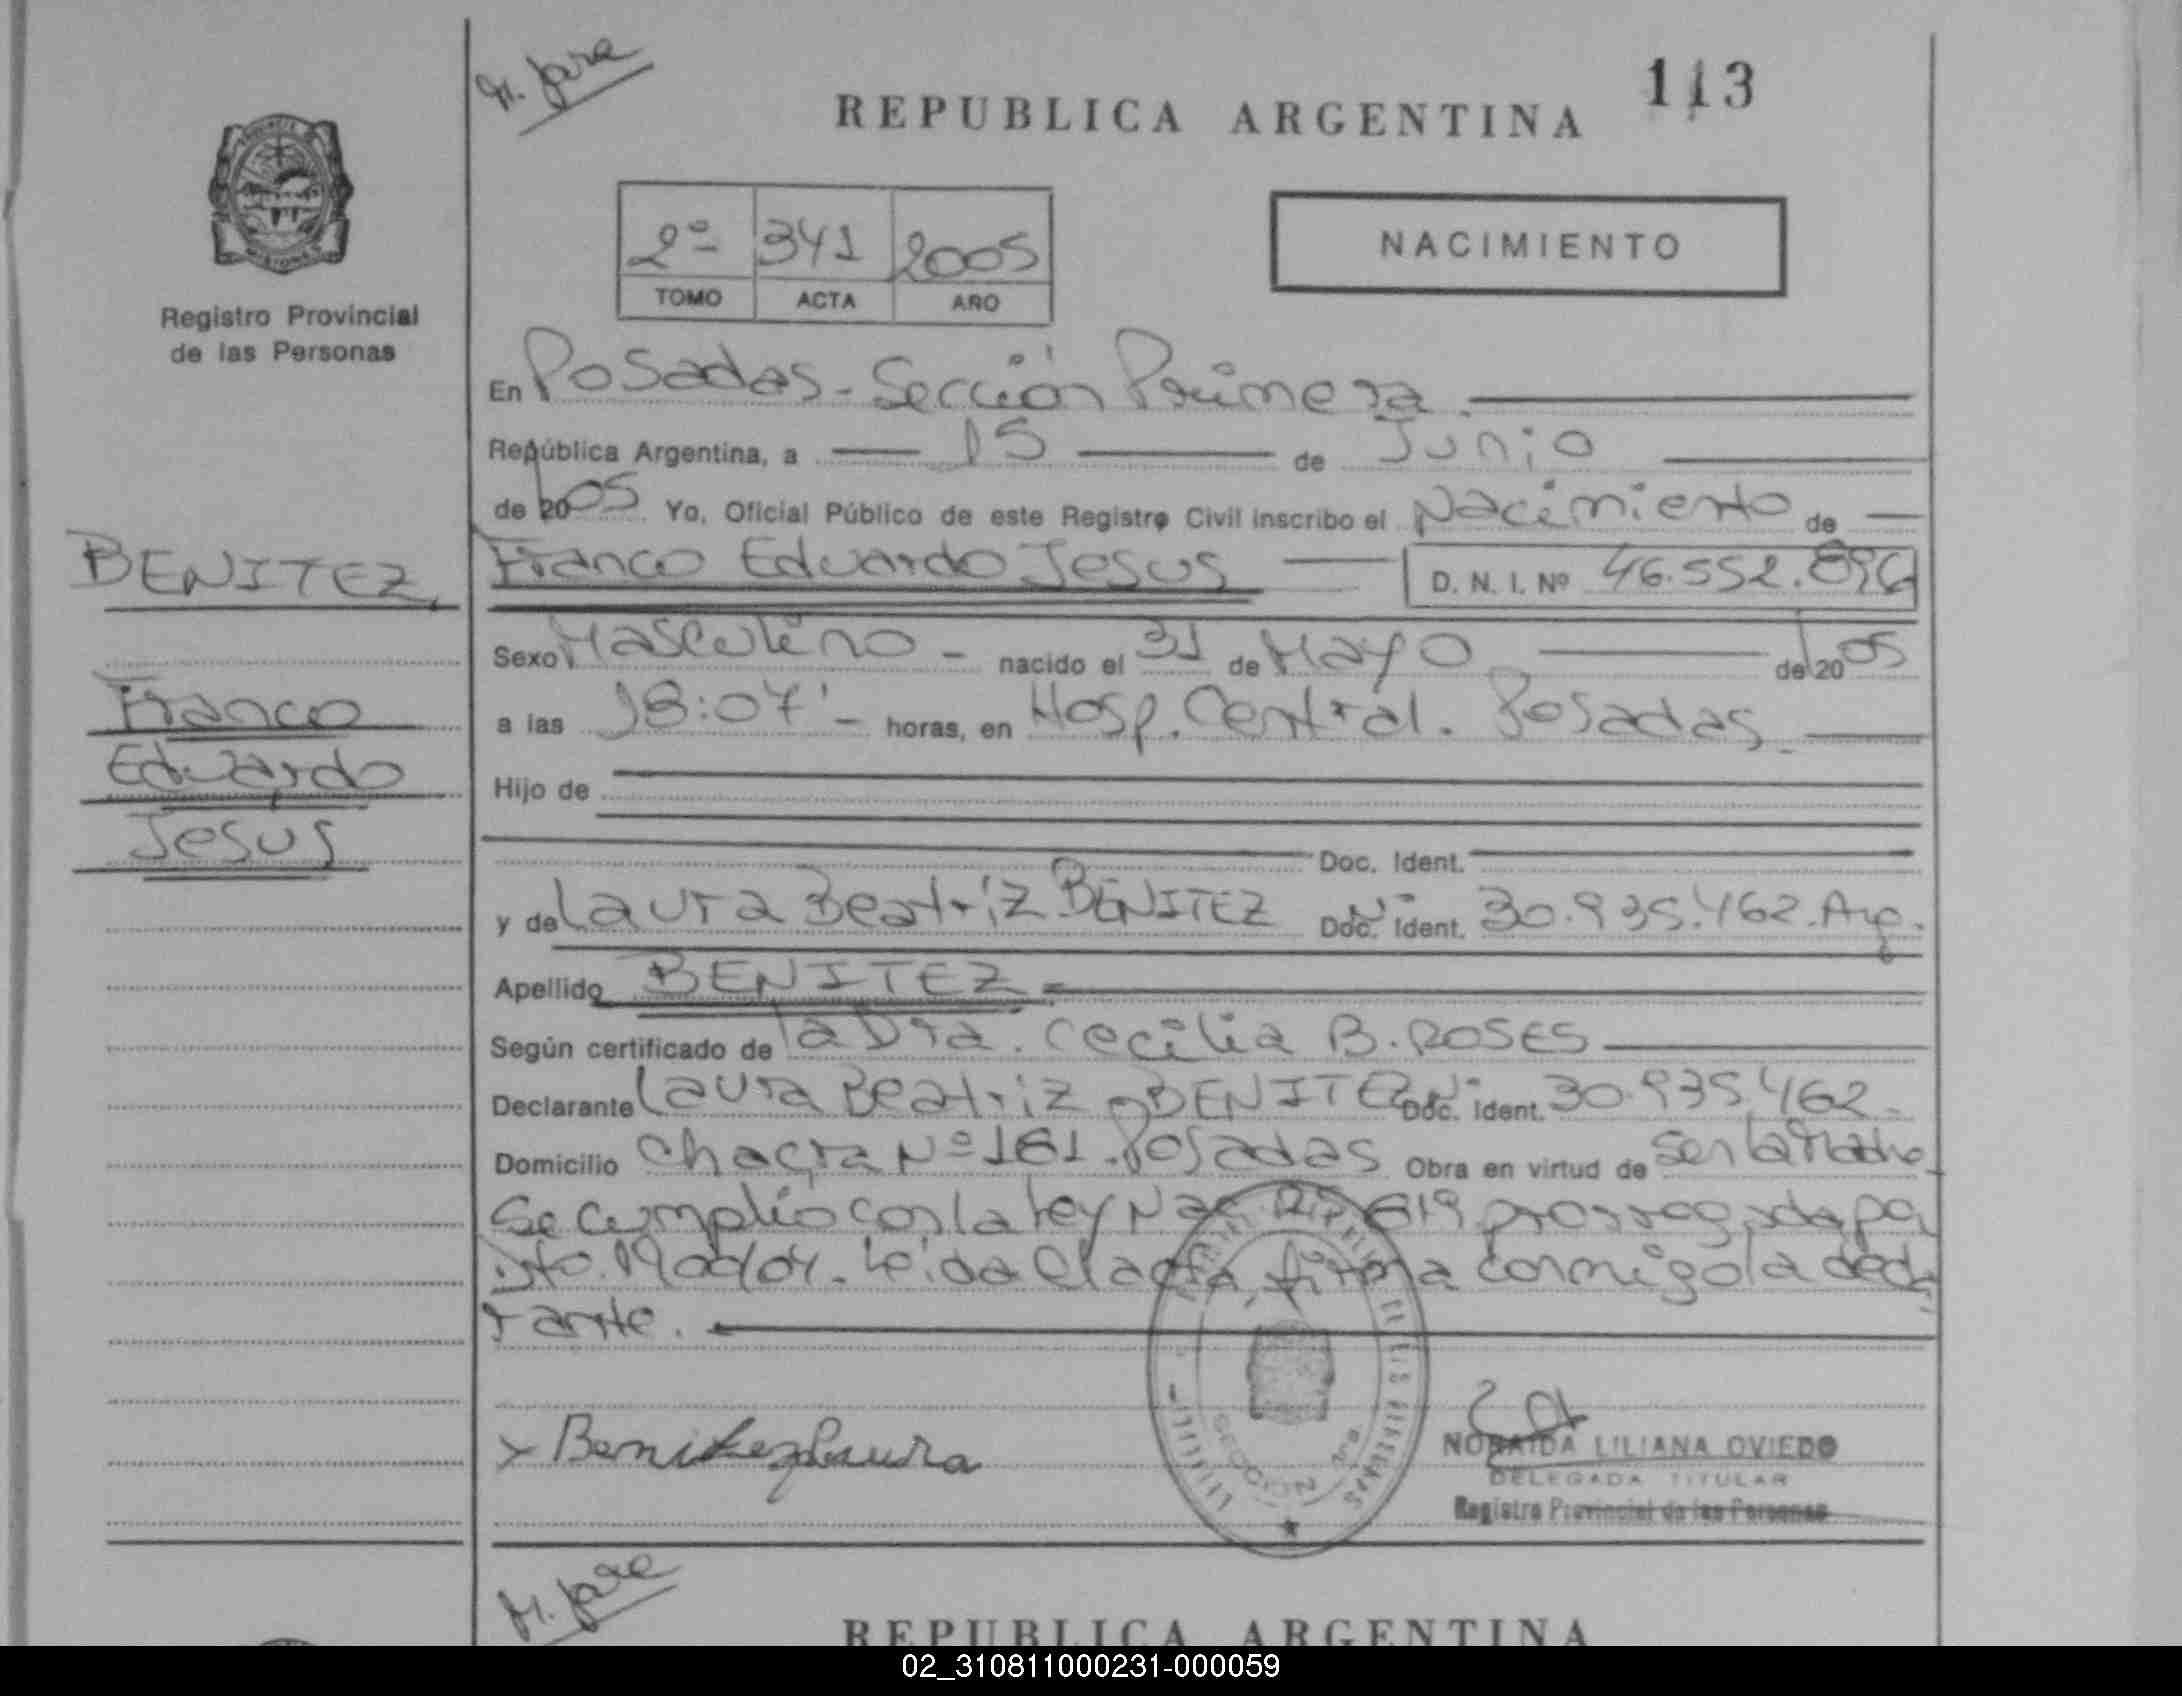 M. Jara
REPUBLICA ARGENTINA 113
2º 341 2005
TOMO ACTA AÑO
NACIMIENTO
Registro Provincial
de las Personas
En Posadas - Sección Primera.
República Argentina, a 15 de Junio
de 2005 Yo, Oficial Público de este Registro Civil inscribo el Nacimiento de
BENITEZ,
Franco Eduardo Jesus D. N. I. Nº 46.552.896
Sexo Masculino - nacido el 31 de Mayo de 2005
Franco
a las 18:07' - horas, en Hosp. Central. Posadas.
Eduardo
Hijo de
Jesus
Doc. Ident.
y de Laura Beatriz BENITEZ Doc. Nº Ident. 30.935.462. Arg.
Apellido BENITEZ.
Según certificado de la Dra. Cecilia B. ROSES
Declarante Laura Beatriz BENITEZ Doc. Nº Ident. 30.935.462.
Domicilio Chacra Nº 181. Posadas Obra en virtud de ser la Madre.
Se cumplió con la Ley Nac 25.819 prorrogada por
Dto. 1900/04. Leida el acta, firma conmigo la decla
rante.
x Benitez Laura
SECCION 1ra.
NORAIDA LILIANA OVIEDO
DELEGADA TITULAR
Registro Provincial de las Personas
M. Jara
REPUBLICA ARGENTINA
02_310811000231-000059